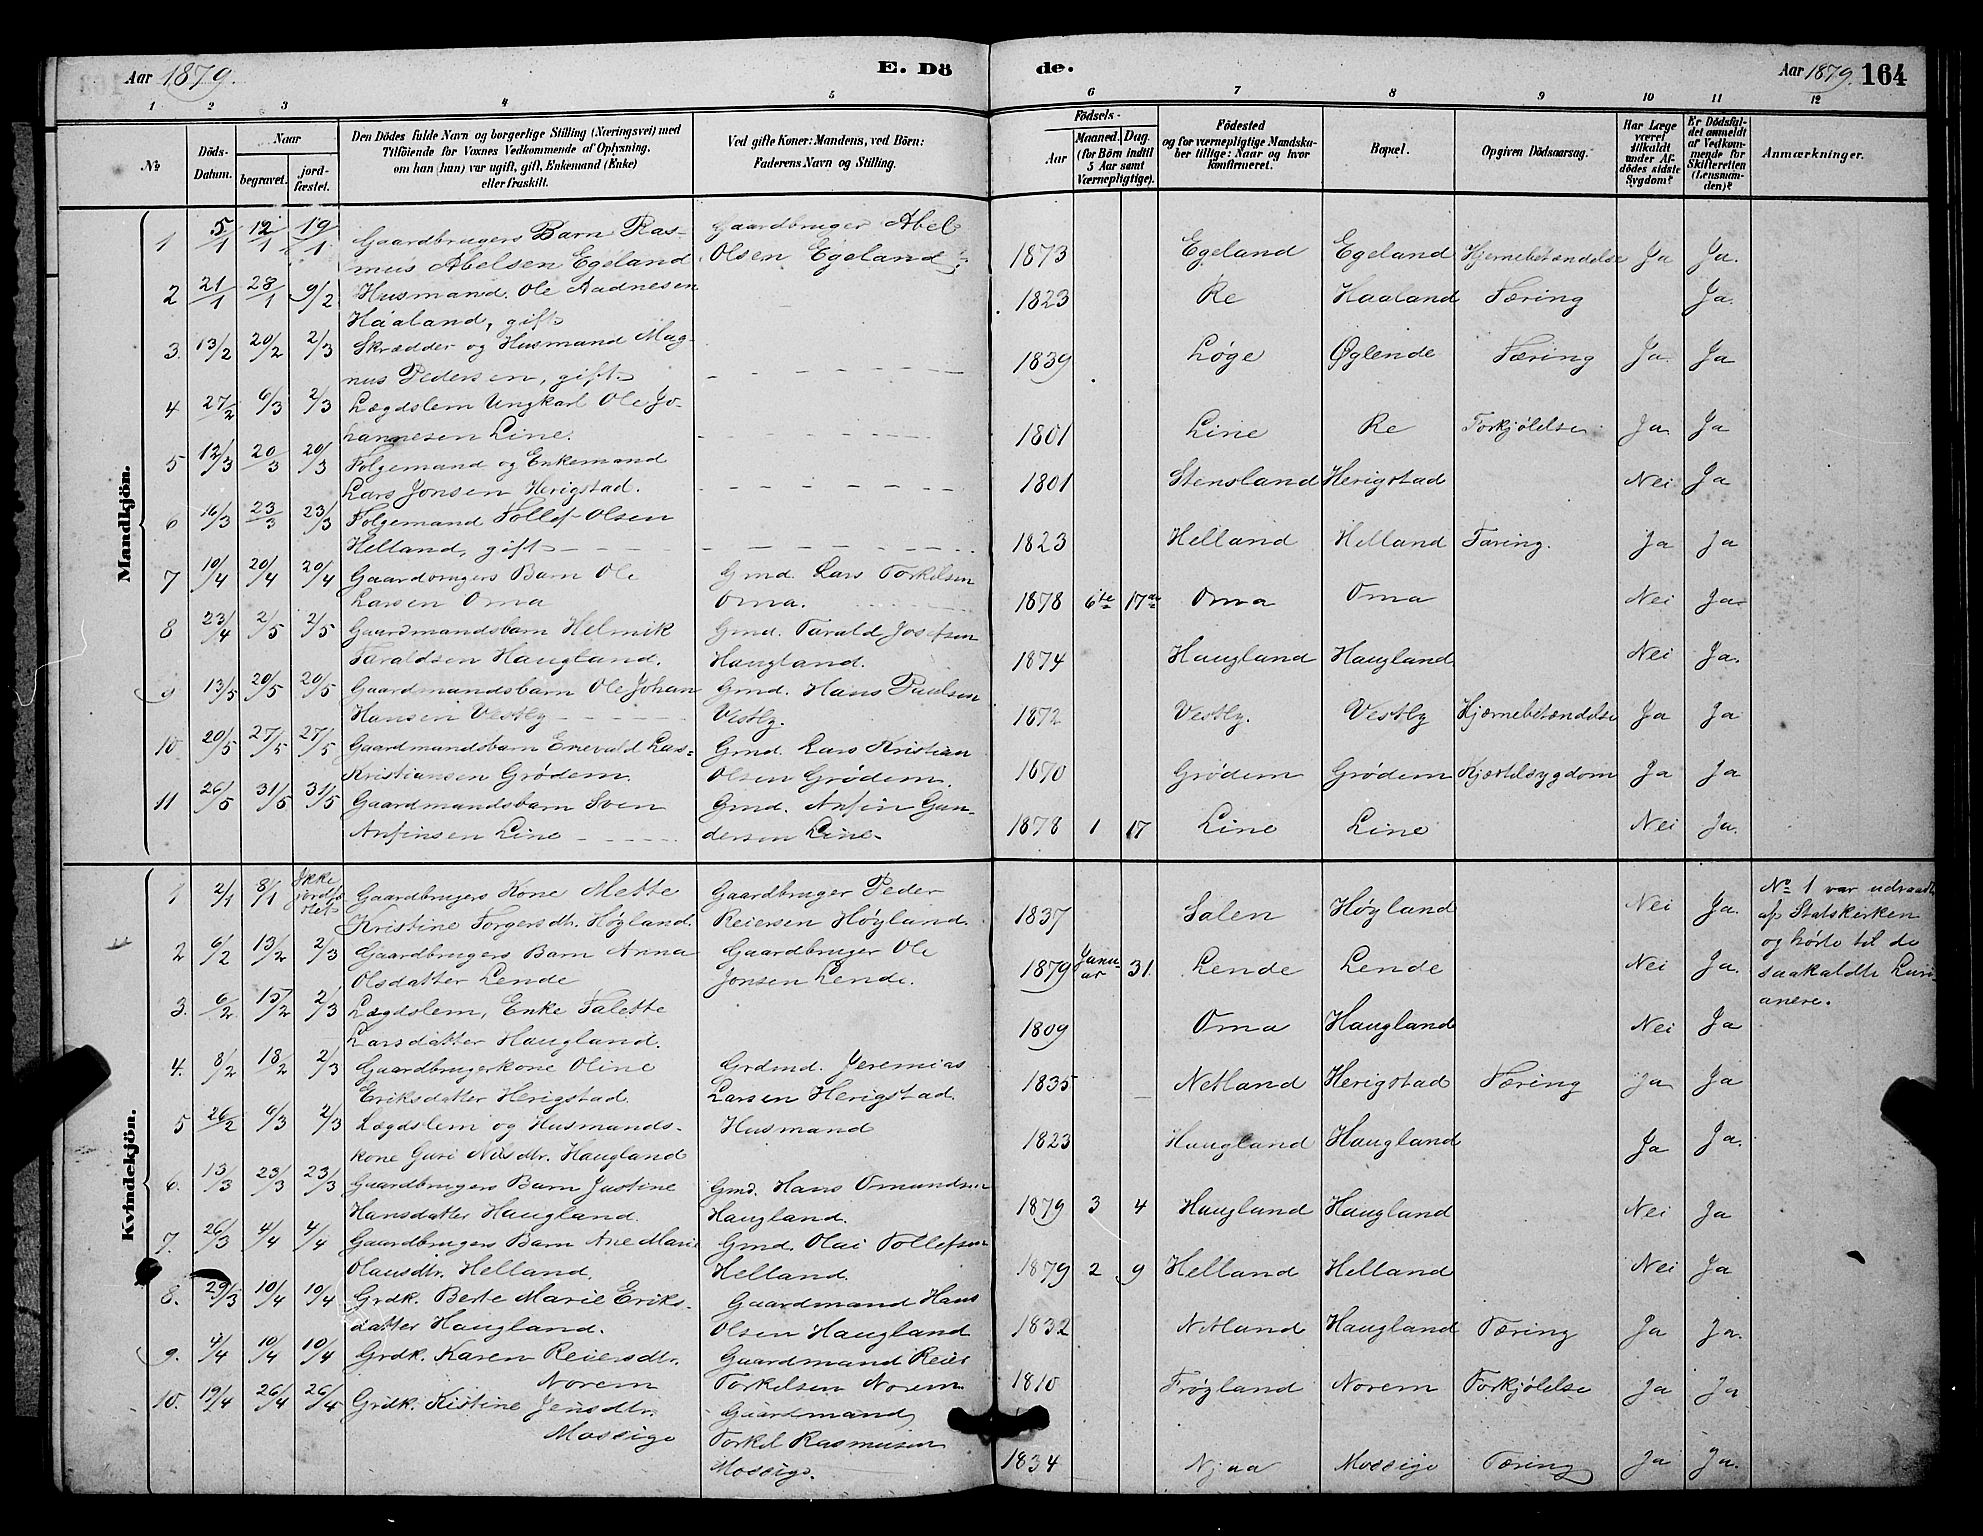 Aar 1879. E. Dö de. Aar 1879. 164
1 2 3 4 5 6 7 8 9 10 11 12
№
Döds-Datum.
Naar
begravet. jord-fæstet.
Den Dödes fulde Navn og borgerlige Stilling (Næringsvei) med
Tilföiende for Voxnes Vedkommende af Oplysning,
om han (hun) var ugift, gift, Enkemand (Enke)
eller fraskilt.
Ved gifte Koner: Mandens, ved Börn:
Faderens Navn og Stilling.
Födsels-
Aar Maaned. Dag.
(for Börn indtil
5 Aar samt
Værnepligtige).
Födested
og for værnepligtige Mandska-
ber tillige: Naar og hvor
konfirmeret.
Bopæl.
Opgiven Dödsaarsag.
Har Læge
været
tilkaldt
under Af-
dödes sidste
Sygdom?
Er Dödsfal-
det anmeldt
af Vedkom-
mende for
Skifteretten
(Lensman-
den)?
Anmærkninger.
Mandkjön.
1 5/1 12/1 19/1 Gaardbrugers Barn Ras- Gaardbruger Abel
mus Abelsen Egeland Olsen Egeland 1873 Egeland Egeland Hjernebetændelse Ja Ja.
2 21/1 28/1 9/2 Husmand Ole Aadnesen
Haaland, gift 1823 Re Haaland Tæring Ja.
3. 13/2 20/2 2/3 Skrædder og Husmand Mag-
nus Pedersen, gift 1839 Løge Øglende Tæring Ja. Ja
4 27/2 6/3 2/3 Lægdslem Ungkarl Ole Jo-
hannesen Line. 1801 Line Re Forkjølelse Ja Ja
5 12/3 20/3 20/3 Folgemand og Enkemand
Lars Jonsen Herigstad. 1801 Stensland Herigstad Nei Ja
6 16/3 23/3 23/3 Folgemand Tollef Olsen
Helland, gift 1823 Helland Helland Tæring. Ja Ja
7 10/4 20/4 20/4 Gaardbrugers Barn Ole Gmd. Lars Torkelsen
Larsen Oma Oma. 1878 6te 17de Oma Oma Nei Ja
8 23/4 2/5 2/5 Gaardmandsbarn Helmik Gmd. Tarald Josefsen
Taraldsen Haugland. Haugland. 1874 Haugland Haugland Nei Ja.
9 13/5 20/5 20/5 Gaardmandsbarn Ole Johan Gmd. Hans Paulsen
Hansen Vestly Vestly. 1872 Vestly. Vestly Hjernebetændelse Ja Ja
10 20/5 27/5 27/5 Gaardmandsbarn Enevald Lars- Gmd. Lars Kristian
Kristiansen Grødem. Olsen Grødem. 1870 Grødem Grødem Kjertelsygdom Ja Ja
11 26/5 31/5 31/5 Gaardmandsbarn Sven Gmd. Anfin Gun-
Anfinsen Line dersen Line. 1878 1 17 Line Line Nei Ja.
Kvindekjön.
1 2/1 8/1 Ikke jordfæstet Gaardbrugers Kone Mette Gaardbruger Peder
Kristine Torgersdtr. Høyland. Reiersen Høyland. 1837 Salen Høyland Nei Ja. No 1 var udtraadt
af Statskirken
og hørte til de
saakaldte
2 6/2 13/2 2/3 Gaardbrugers Barn Anna Gaardbruger Ole
Olsdatter Lende Jonsen Lende. 1879 Januar 31. Lende Lende Nei Ja.
3. 6/2 15/2 2/3 Lægdslem, Enke Talette
Larsdatter Haugland. 1809 Oma Haugland Nei Ja
4. 8/2 18/2 2/3 Gaardbrugerkone Oline Grdmd. Jeremias
Eriksdatter Herigstad. Larsen Herigstad. 1835 Netland Herigstad Tæring Ja Ja
5 26/2 6/3 2/3 Lægdslem og Husmands- Husmand
kone Guri Nilsdtr. Haugland 1823 Haugland Haugland Ja Ja.
6. 13/3 23/3 23/3 Gaardbrugers Barn Justine Gmd. Hans Omundsen
Hansdatter Haugland. Haugland. 1879 3 4 Haugland Haugland Nei Ja
7. 26/3 4/4 4/4 Gaardbrugers Barn Ane Marie Gmd. Olai Tollefsen
Olausdtr. Helland. Helland. 1879 2 9 Helland Helland Nei Ja
8. 29/3 10/4 10/4 Grdk. Berte Marie Eriks- Gaardmand Hans
datter Haugland. Olsen Haugland 1832 Netland Haugland Tæring Ja Ja.
9. 4/4 10/4 10/4 Grdk. Karen Reiersdtr. Gaardmand Reier
Norem Torkelsen Norem 1810 Frøyland Norem Forkjølelse Ja Ja
10. 19/4 26/4 26/4 Grdk. Kistine Jensdtr. Gaardmand
Mossige Torkel Rasmusen
Mossige. 1834 Njaa Mossige Tæring Ja Ja.